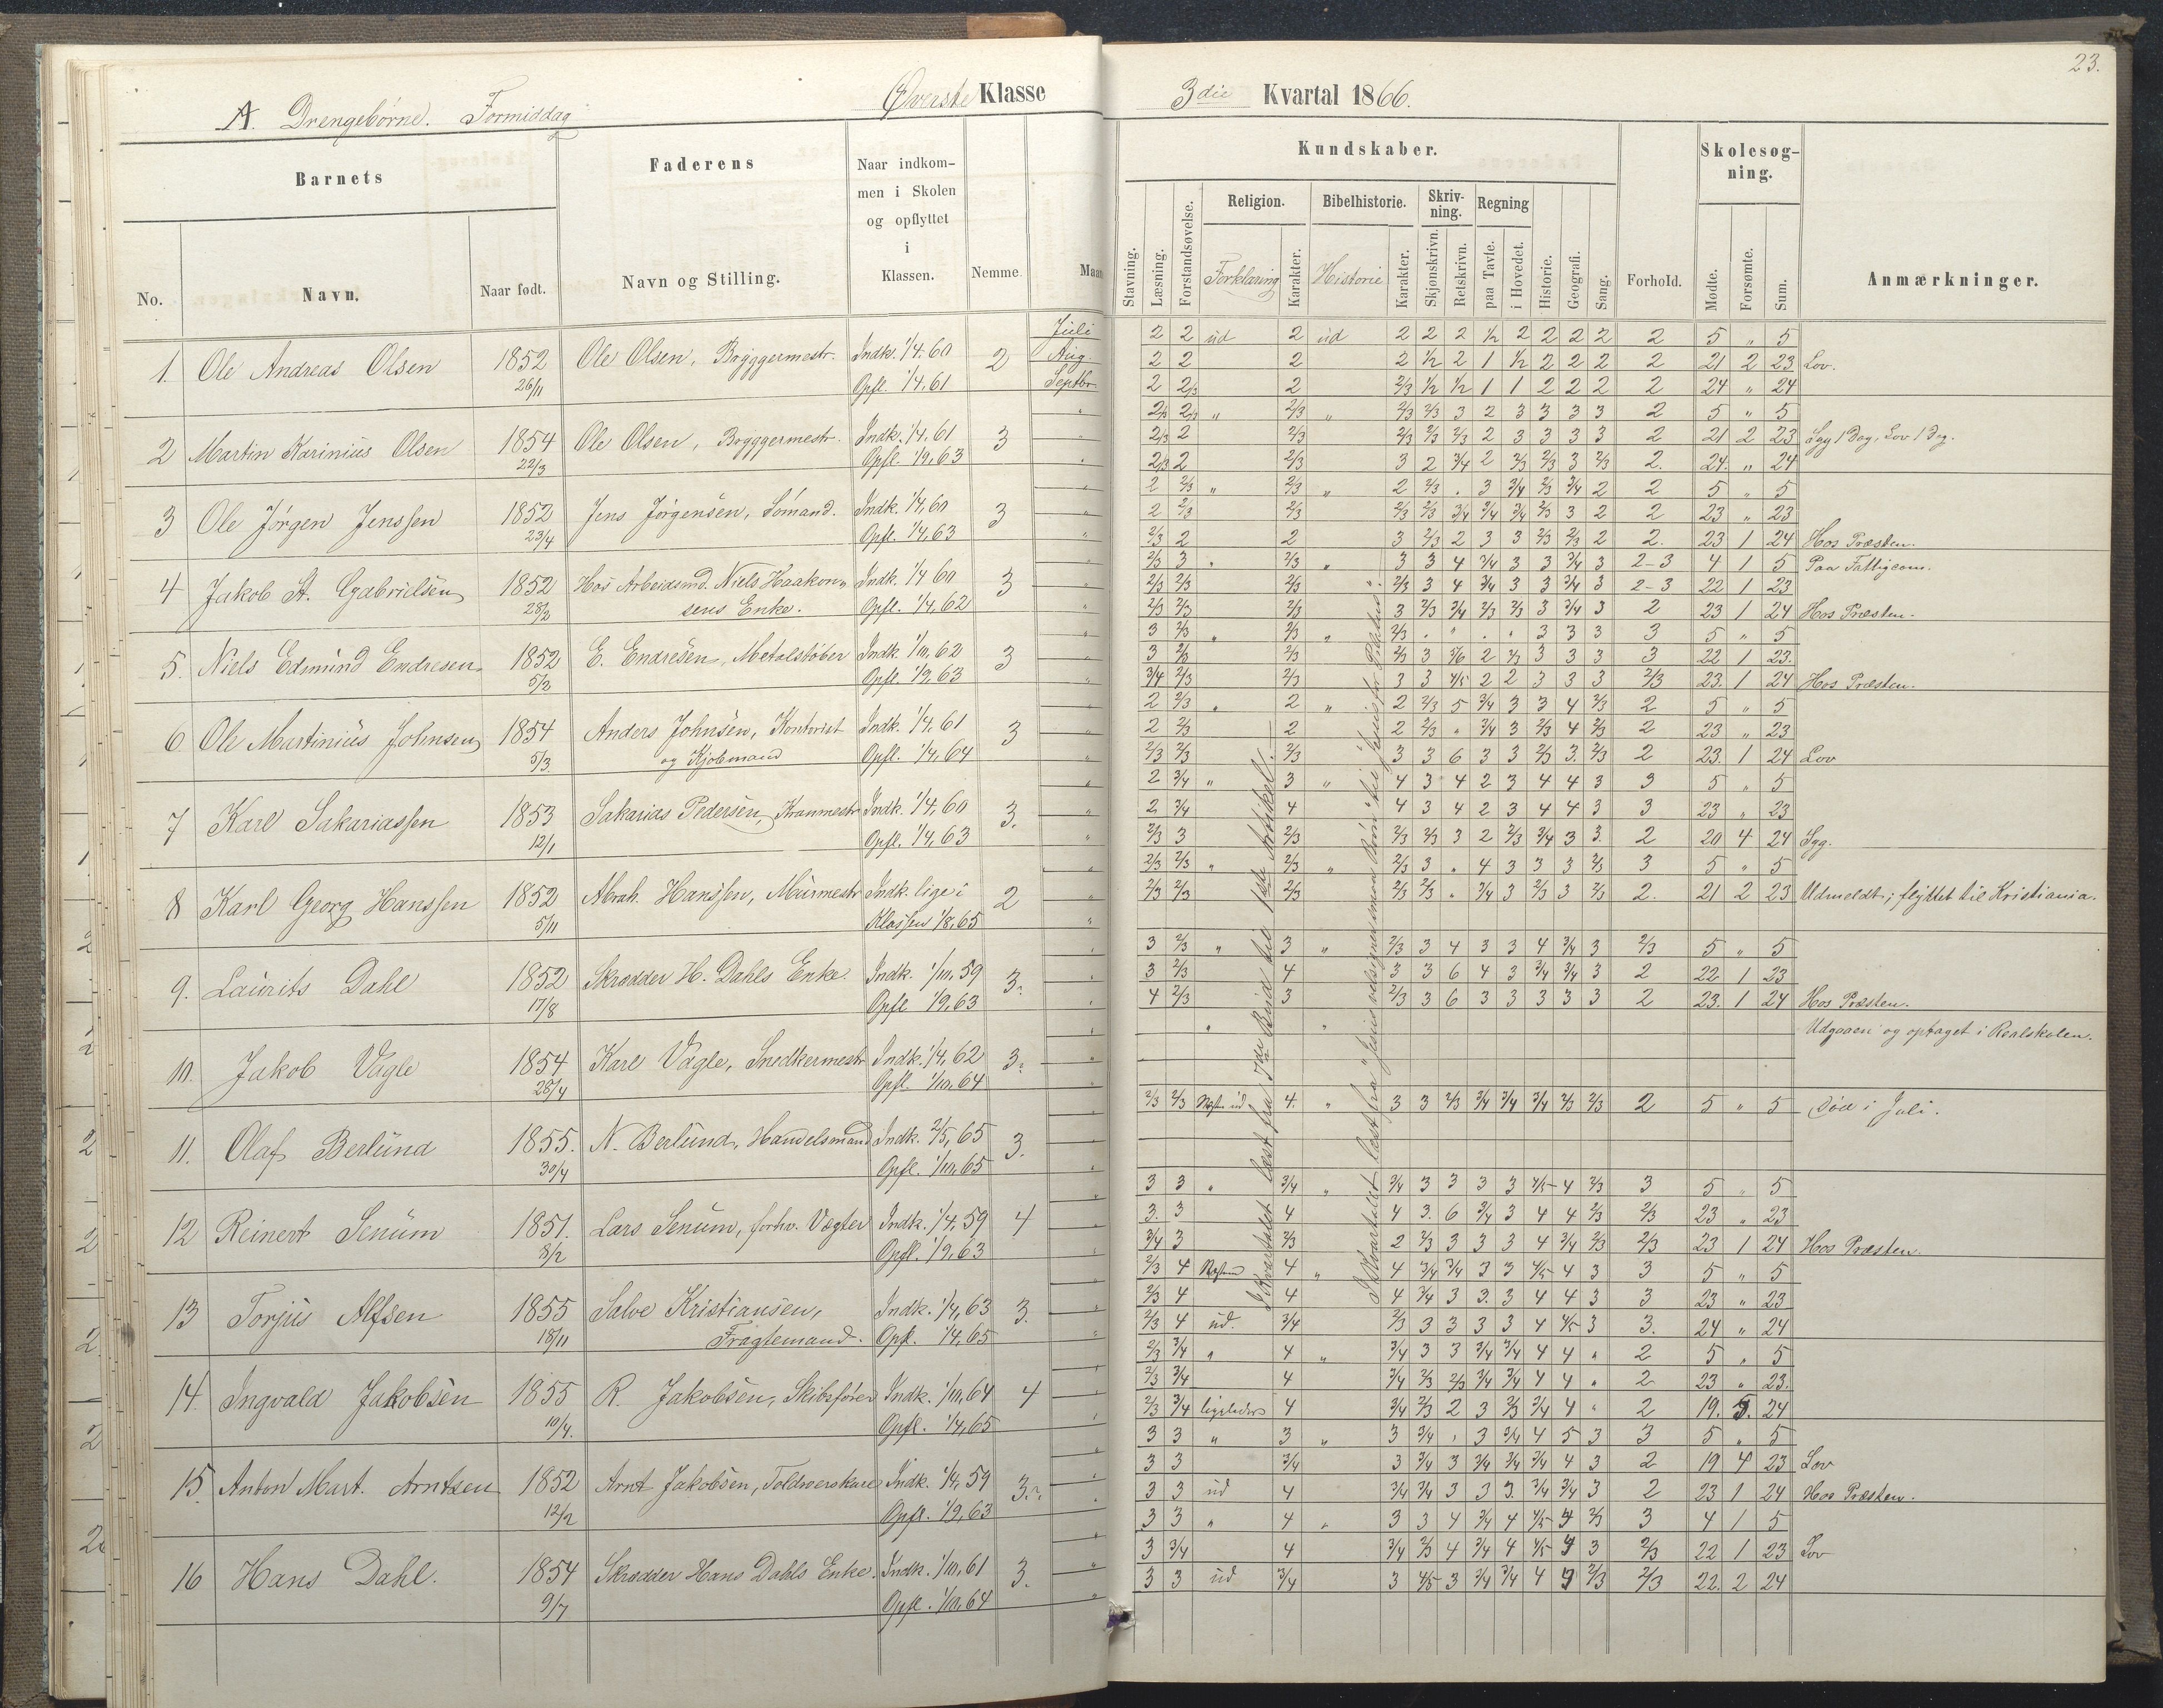 23.
A. Drengebørne. Formiddag
Øverste Klasse
3die Kvartal 1866.
Barnets
Faderens
Naar indkom-
men i Skolen
og opflyttet
i
Klassen.
Nemme
Maan
No.
Navn.
Naar født.
Navn og Stilling.
Kundskaber.
Stavning.
Læsning.
Forstandsøvelse.
Religion.
Forklaring
Karakter.
Bibelhistorie.
Historie
Karakter.
Skriv-
ning.
Skjønskrivn.
Retskrivn.
Regning
paa Tavle.
i Hovedet.
Historie.
Geografi.
Sang.
Forhold.
Skolesøg-
ning.
Mødte.
Forsømte.
Sum.
Anmærkninger.
Juli
1. Ole Andreas Olsen 1852 Ole Olsen, Bryggermestr. Indk. 1/4. 60 2 Aug.
26/11 Opfl. 1/4, 61 Septbr.
2 Martin Karinius Olsen 1854 Ole Olsen, Bryggermestr. Indk. 1/4, 61 3
22/3 Opfl. 1/9, 63
3 Ole Jørgen Jenssen 1852 Jens Jørgensen, Sømand. Indk. 1/4, 60 3
23/4 Opfl. 1/4, 63
4 Jakob A. Gabrielsen 1852 Hos Arbeidsmd. Niels Haakon- Indk. 1/4 60 3
28/2 sens Enke. Opfl. 1/4, 62
5. Niels Edmund Endresen 1852 E. Endresen, Metalstøber Indk. 1/10, 62 3
5/3 Opfl. 1/9, 63
6 Ole Martinius Johnsen 1854 Anders Johnsen, Kontorist Indk. 1/4, 61 3
5/3. og Kjøbmand Opfl. 1/4, 64
7 Karl Sakariassen 1853 Sakarias Pedersen, Kranmestr Indk. 1/4, 60 3.
12/1 Opfl. 1/4, 63
8 Karl Georg Hanssen 1852 Abrah. Hanssen, Murmestr Indk. lige i 2
5/11 Klassen 1/8, 65
9. Laurits Dahl 1852 Skrædder H. Dahls Enke. Indk. 1/10, 59 3.
17/8 Opfl 1/9, 63
10. Jakob Vagle 1854 Karl Vagle, Snedkermestr Indk. 1/4, 62 3.
28/4 Opfl. 1/10, 64
11. Olaf Berlund 1855. N. Berlund, Handelsmand Indk. 2/5, 65 3.
30/4 Opfl. 1/10, 65
12 Reinert Senum 1851. Lars Senum, forhv. Vægter Indk. 1/4, 59 4
8/2 Opfl. 1/9, 63
13 Torjus Alfsen 1855 Salve Kristiansen, Indk. 1/4, 63 3.
18/11 Fragtemand. Opfl. 1/4, 65
14. Ingvald Jakobsen 1855 R. Jakobsen, Skibsfører Indk. 1/10, 64 4
10/4. Opfl. 1/4, 65
15. Anton Mart. Arntsen 1852 Arnt Jakobsen, Toldroerskarl Indk. 1/4, 59 3.
12/2 Opfl. 1/9, 63
16 Hans Dahl. 1854 Skrædder Hans Dahls Enke. Indk. 1/10, 61 3.
9/7 Opfl. 1/10, 64
2 2 ud 2 ud 2 2 2 1/2 2 2 2 2 2 5 " 5
2 2 2 2 1/2 2 1 1/2 2 2 2 2 21 2 23 Lov.
2 2/3 2 2/3 1/2 1/2 1 1 2 2 2 2 24 " 24
2/3 2/3 " 2/3 " 2/3 2/3 3 2 3 3 3 3 2 5 " 5
2/3 2 2/3 2/3 2/3 2/3 2 3 3 3 3 2 21 2 23 Syg 1 Dag, Lov 1 Dag.
2/3 2 2/3 3 2 3/4 2 2/3 2/3 3 2/3 2. 24. " 24
2 2/3 " 2/3 " 2 2/3 . 3 3/4 2/3 3/4 2 2 5 " 5
2 2/3 2/3 2/3 2/3 3/4 3/4 3/4 2/3 3 2 2 23 " 23
2/3 2 2 3 2/3 2 3 3 2/3 2/3 2 2. 23 1 24 Hos Præsten.
2/3 3 " 2/3 " 3 3 4 3/4 3 3 3/4 3 2-3 4 1 5 Paa Fattigcom.
2/3 2/3 2/3 2/3 3 4 3/4 3 3 3/4 3 2-3 22 1 23
2/3 2/3 2/3 3 2/3 3/4 2/3 2/3 3 3/4 3 2 23 1 24 Hos Præsten.
3 2/3 " 2/3 " 2/3 . " . " 3 3 3 3 5 " 5
3 2/3 2/3 2/3 3 5/6 2 2/3 3 3 3 3 22 1 23.
3/4 2/3 2/3 3 3 4/5 2 2 3 3 3 2/3 23. 1 24 Hos Præsten.
2 2/3 " 2 " 2 2/3 5 3/4 3 3 4 2/3 2 5 " 5
2 2/3 2 2 2/3 " 3/4 3 2/3 4 2/3 2 23 " 23
2/3 2/3 2/3 3 3 6 3 3 2/3 3. 2/3 2 23. 1 24 Lov
2 3/4 " 3 " 4 3 4 2 3 4 4 3 3 5 " 5
2 3/4 4 4 3 4 2 3 4 4 3 3 23 " 23
2/3 3 2/3 2/3 2/3 3 2 2/3 3/4 3 3. 2 20 4 24 Syg.
2/3 2/3 " 2/3 " 2/3 3 " 4 3 3 3 2/3 3 5 " 5
2/3 2/3 2/3 2/3 2/3 " 3/4 3 2/3 3 2/3 2. 21 2 23 Udmeldt; flyttet til Kristiania.
3 2/3 " 3 " 2/3 3 4 3 3 4 3/4 3 2/3 5 " 5
3 2/3 4 3 3 6 4 3 3/4 3/4 3 2 22 1 23
4 2/3 3 2/3 3 6 3 3 3 3 3 2 23. 1 24 Hos Præsten.
" " Udgaaen og optaget i Realskolen.
2/3 2/3 Næsten ud 4. " 3 3 2/3 3/4 3/4 3/4 2/3 2/3 2 5 " 5 Død i Juli.
3 3 " 3/4 " 3/4 3 3 3 3 4/5 4 2/3 3 5 " 5
3. 3 4 4 3. 6 3/4 3 4 4 2/3 2/3 23 " 23
3/4 3 2/3 2 2/3 3 3 3 4 3/4 2/3 2/3 23 1 24 Hos Præsten.
2/3 4 4 " 4 3/4 3/4 3 3 4/5 4 3 3 5 " 5
2/3 4 4 4 3/4 3 3. 3 4 4 3 3 23 " 23
2/3 4 ud. 3/4 2/3 3 3 3 3 4 4/5 3 3. 24 " 24
2/3 3/4 " 4 " 3/4 3 3 3/4 3/4 4 4 " 2 5 " 5
2/3 3/4 4 3/4 2/3 2/3 3/4 3/4 4 4 " 2 23 " 23.
2/3 3/4 ligeledes 4 3/4 2/3 2 3 2/3 3/4 4 " 2 19. 5. 24
3 3 " 3 " 3 3/4 " 3 3/4 4 5 3 3 5 " 5
3 3 3/4 3 3/4 3 3/4 3/4 3/4 4 3 2 19 4 23 Lov
3 3 ud 4 3/4 3/4 3 3 3. 3/4 3/4 3 2 23 1 24 Hos Præsten.
3 3 " 4 " 3 3 4 3/4 4 4/5 4 2/3 3 4 1 5
3 3/4 4 3/4 2/3 4 3/4 4 4/5 4 3 2/3 22 1 23 Lov
3 3 ud 3/4 3 4/5 3 3/4 3/4 4 4 2/3 2/3 22. 2 24
I Kvartalet læst fra 3die Bud til 1ste Artikel.
I Kvartalet læst fra "Jesus velsigner smaa Børn" til "Jesus for Pilatus".